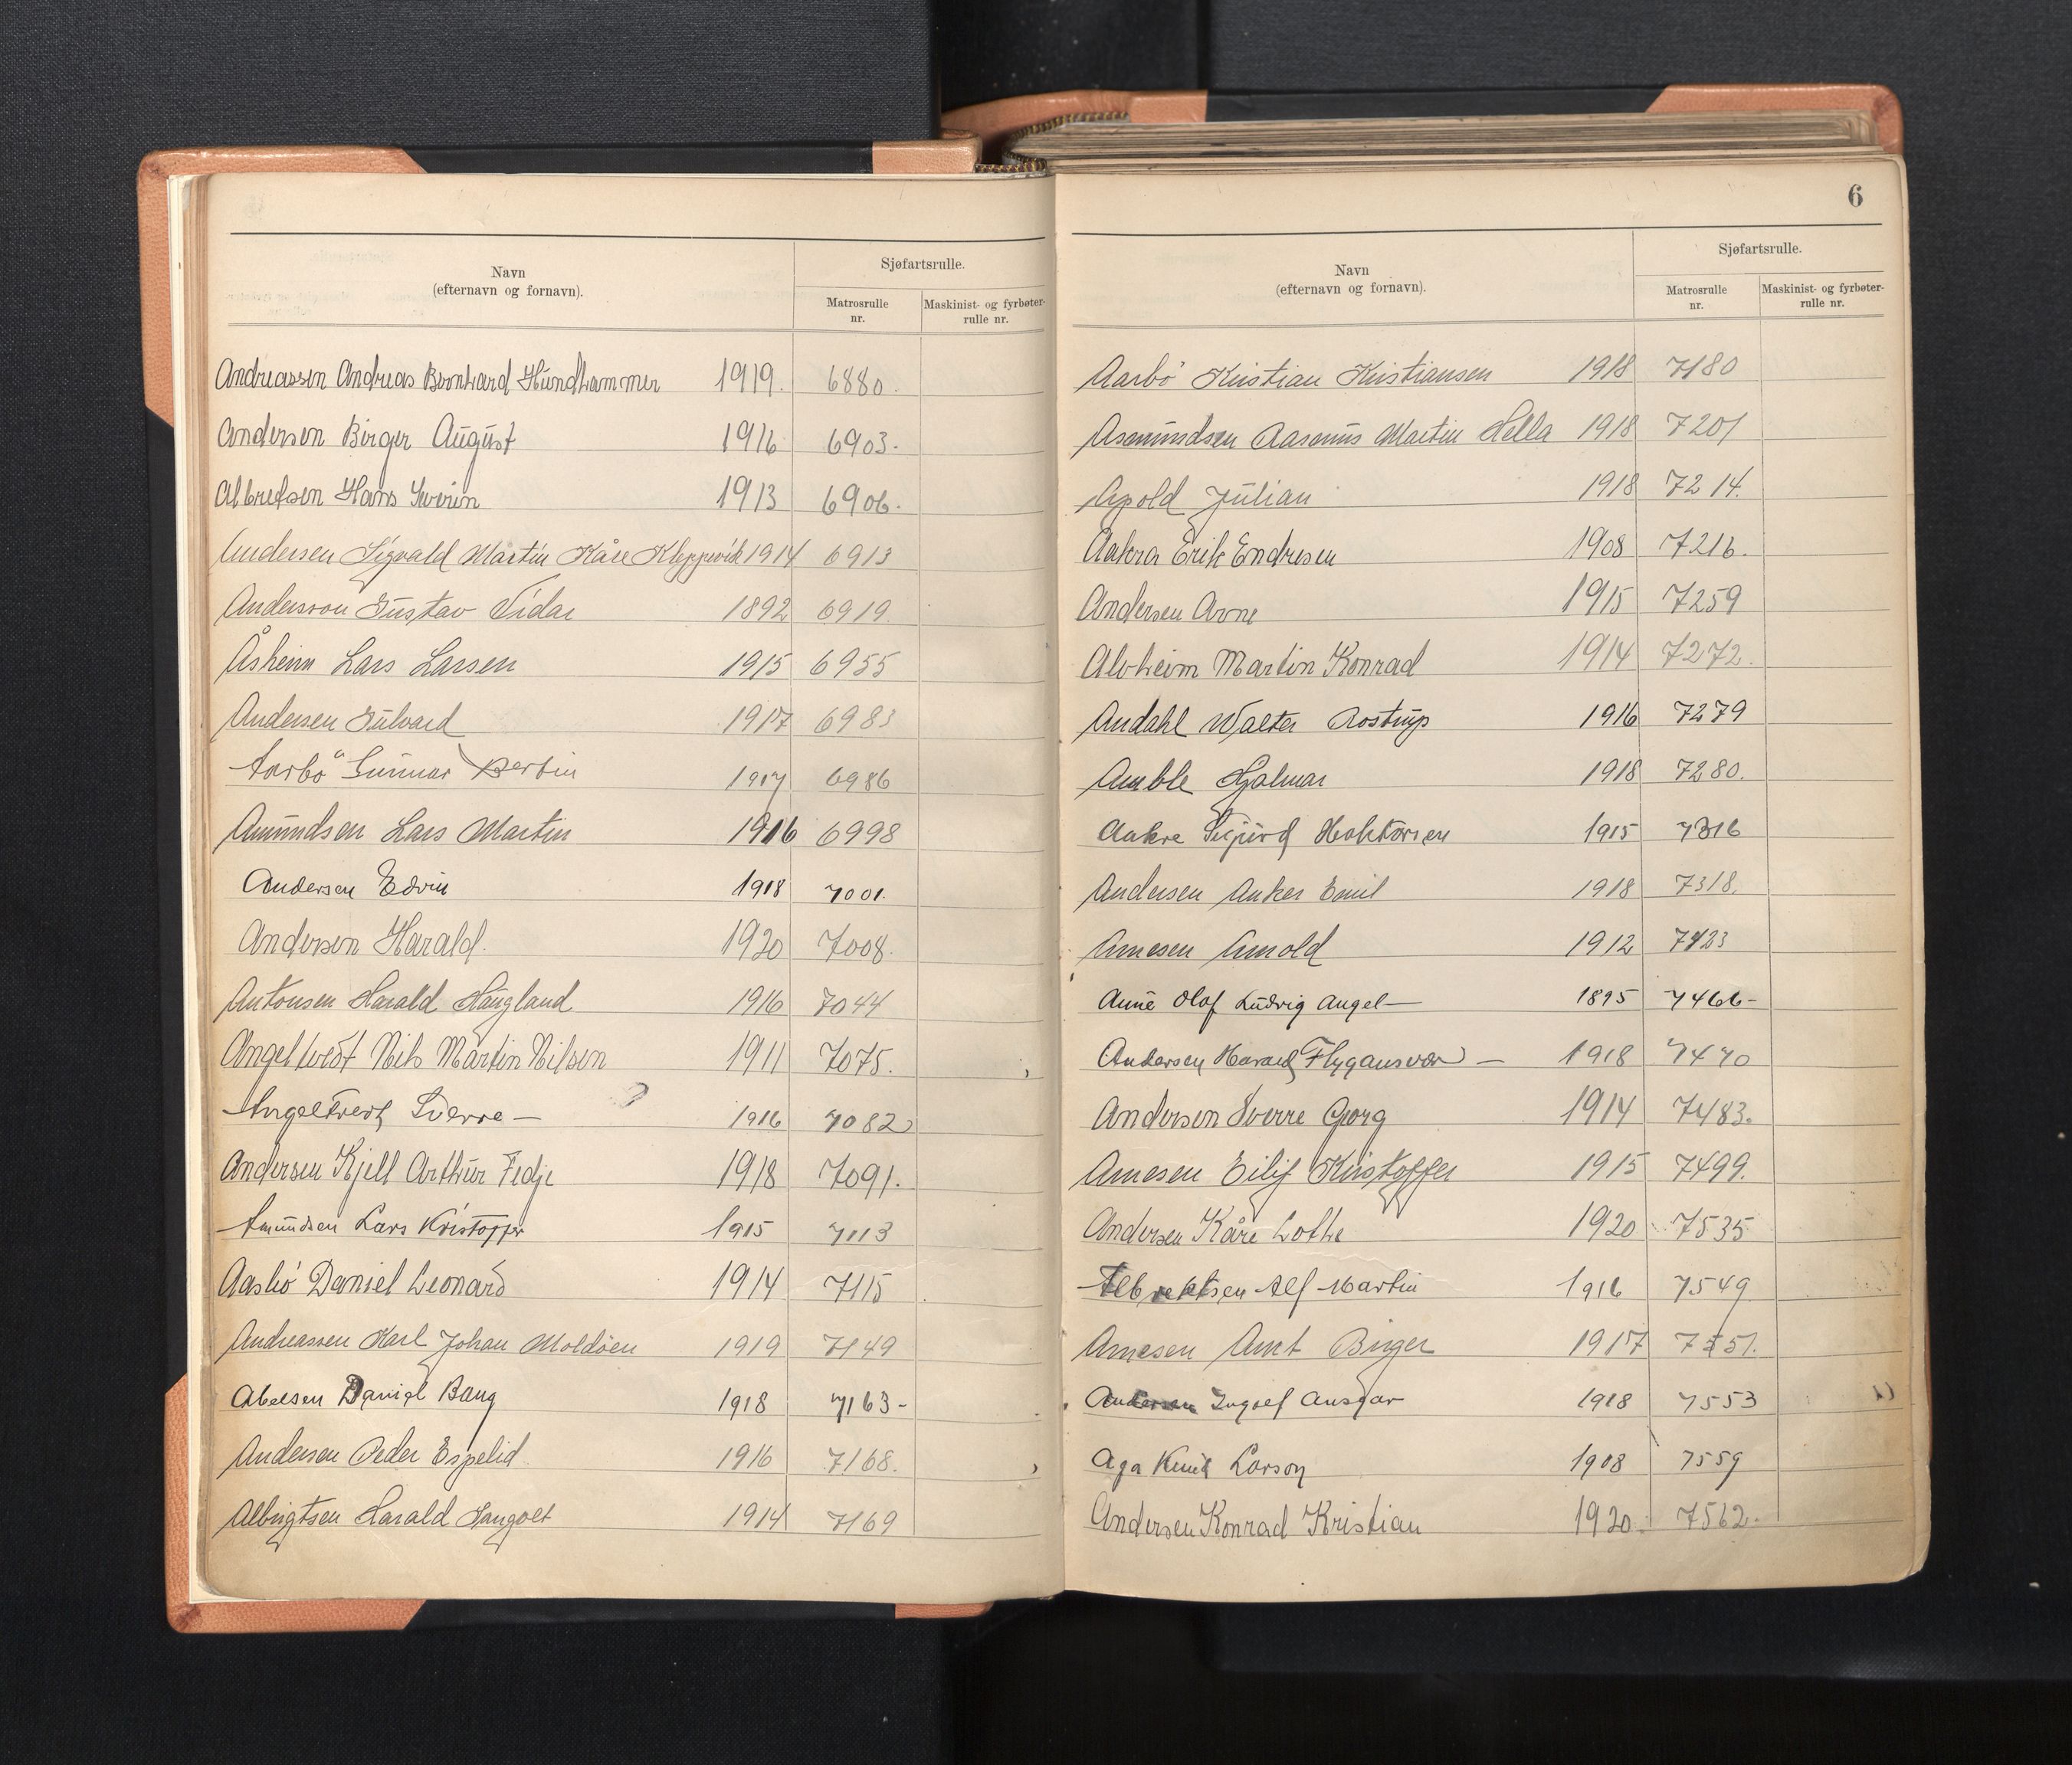 Navn
(efternavn og fornavn).
Sjøfartsrulle.
Matrosrulle
nr.
Maskinist- og fyrbøter-
rulle nr.
Andreassen Andreas Bernhard Hundhammer 1919. 6880.
Andersen Birger August 1916 6903.
Albretsen Hans Severin 1913 6906.
Andersen Sigvald Martin Kåre Kleppevik 1914 6913
Andersson Gustav Vidar 1892 6919
Åsheim Lars Larsen 1915 6955
Andersen Gulvard 1917 6983
Aarbö Gunnar Bertin 1917 6986
Amundsen Lars Martin 1916 6998
Andersen Edvin 1918 7001.
Andersen Harald. 1920 7008.
Antonsen Harald Haugland 1916 7044
Angeltveit Nils Martin Nilsen 1911 7075.
Angeltveit Sverre — 1916 7082
Andersen Kjell Arthur Fedje 1918 7091.
Amundsen Lars Kristoffer 1915 7113
Aasbö Daniel Leonard 1914 7115
Andreassen Karl Johan Moldöen 1919 7149
Abelsen Daniel Bang 1918 7163-
Andersen Peder Espelid 1916 7168.
Albrigtsen Harald 1914 7169
6
Navn
(efternavn og fornavn).
Sjøfartsrulle.
Matrosrulle
nr.
Maskinist- og fyrbøter-
rulle nr.
Aarbö Kristian Kristiansen 1918 7180
Asmundsen Aasmus Martin Hella 1918 7201
Apold Julian 1918 7214.
Aakra Erik Endresen 1908 7216.
Andersen Arne 1915 7259
Alvheim Martin Konrad 1914 7272.
Andahl Walter Rostrup 1916 7279
Amble Hjalmar 1918 7280.
Aakre Sigurd 1915 7316
Andersen Anker Emil 1918 7318.
Arnesen Arnold 1912 7423
Anne Olaf Ludvig Angel — 1895 7466-
Andersen Harald Flygansvær — 1918 7470
Andersen Sverre Georg 1914 7483.
Arnesen Eilif Kristoffer 1915 7499.
Andersen Kåre Lothe 1920 7535
Albrektsen Alf Martin 1916 7549
Arnesen Arnt Birger 1917 7551.
Andersen Ingolf Ansgar 1918 7553
Aga Knut Larson 1908 7559
Andersen Konrad Kristian 1920. 7562.